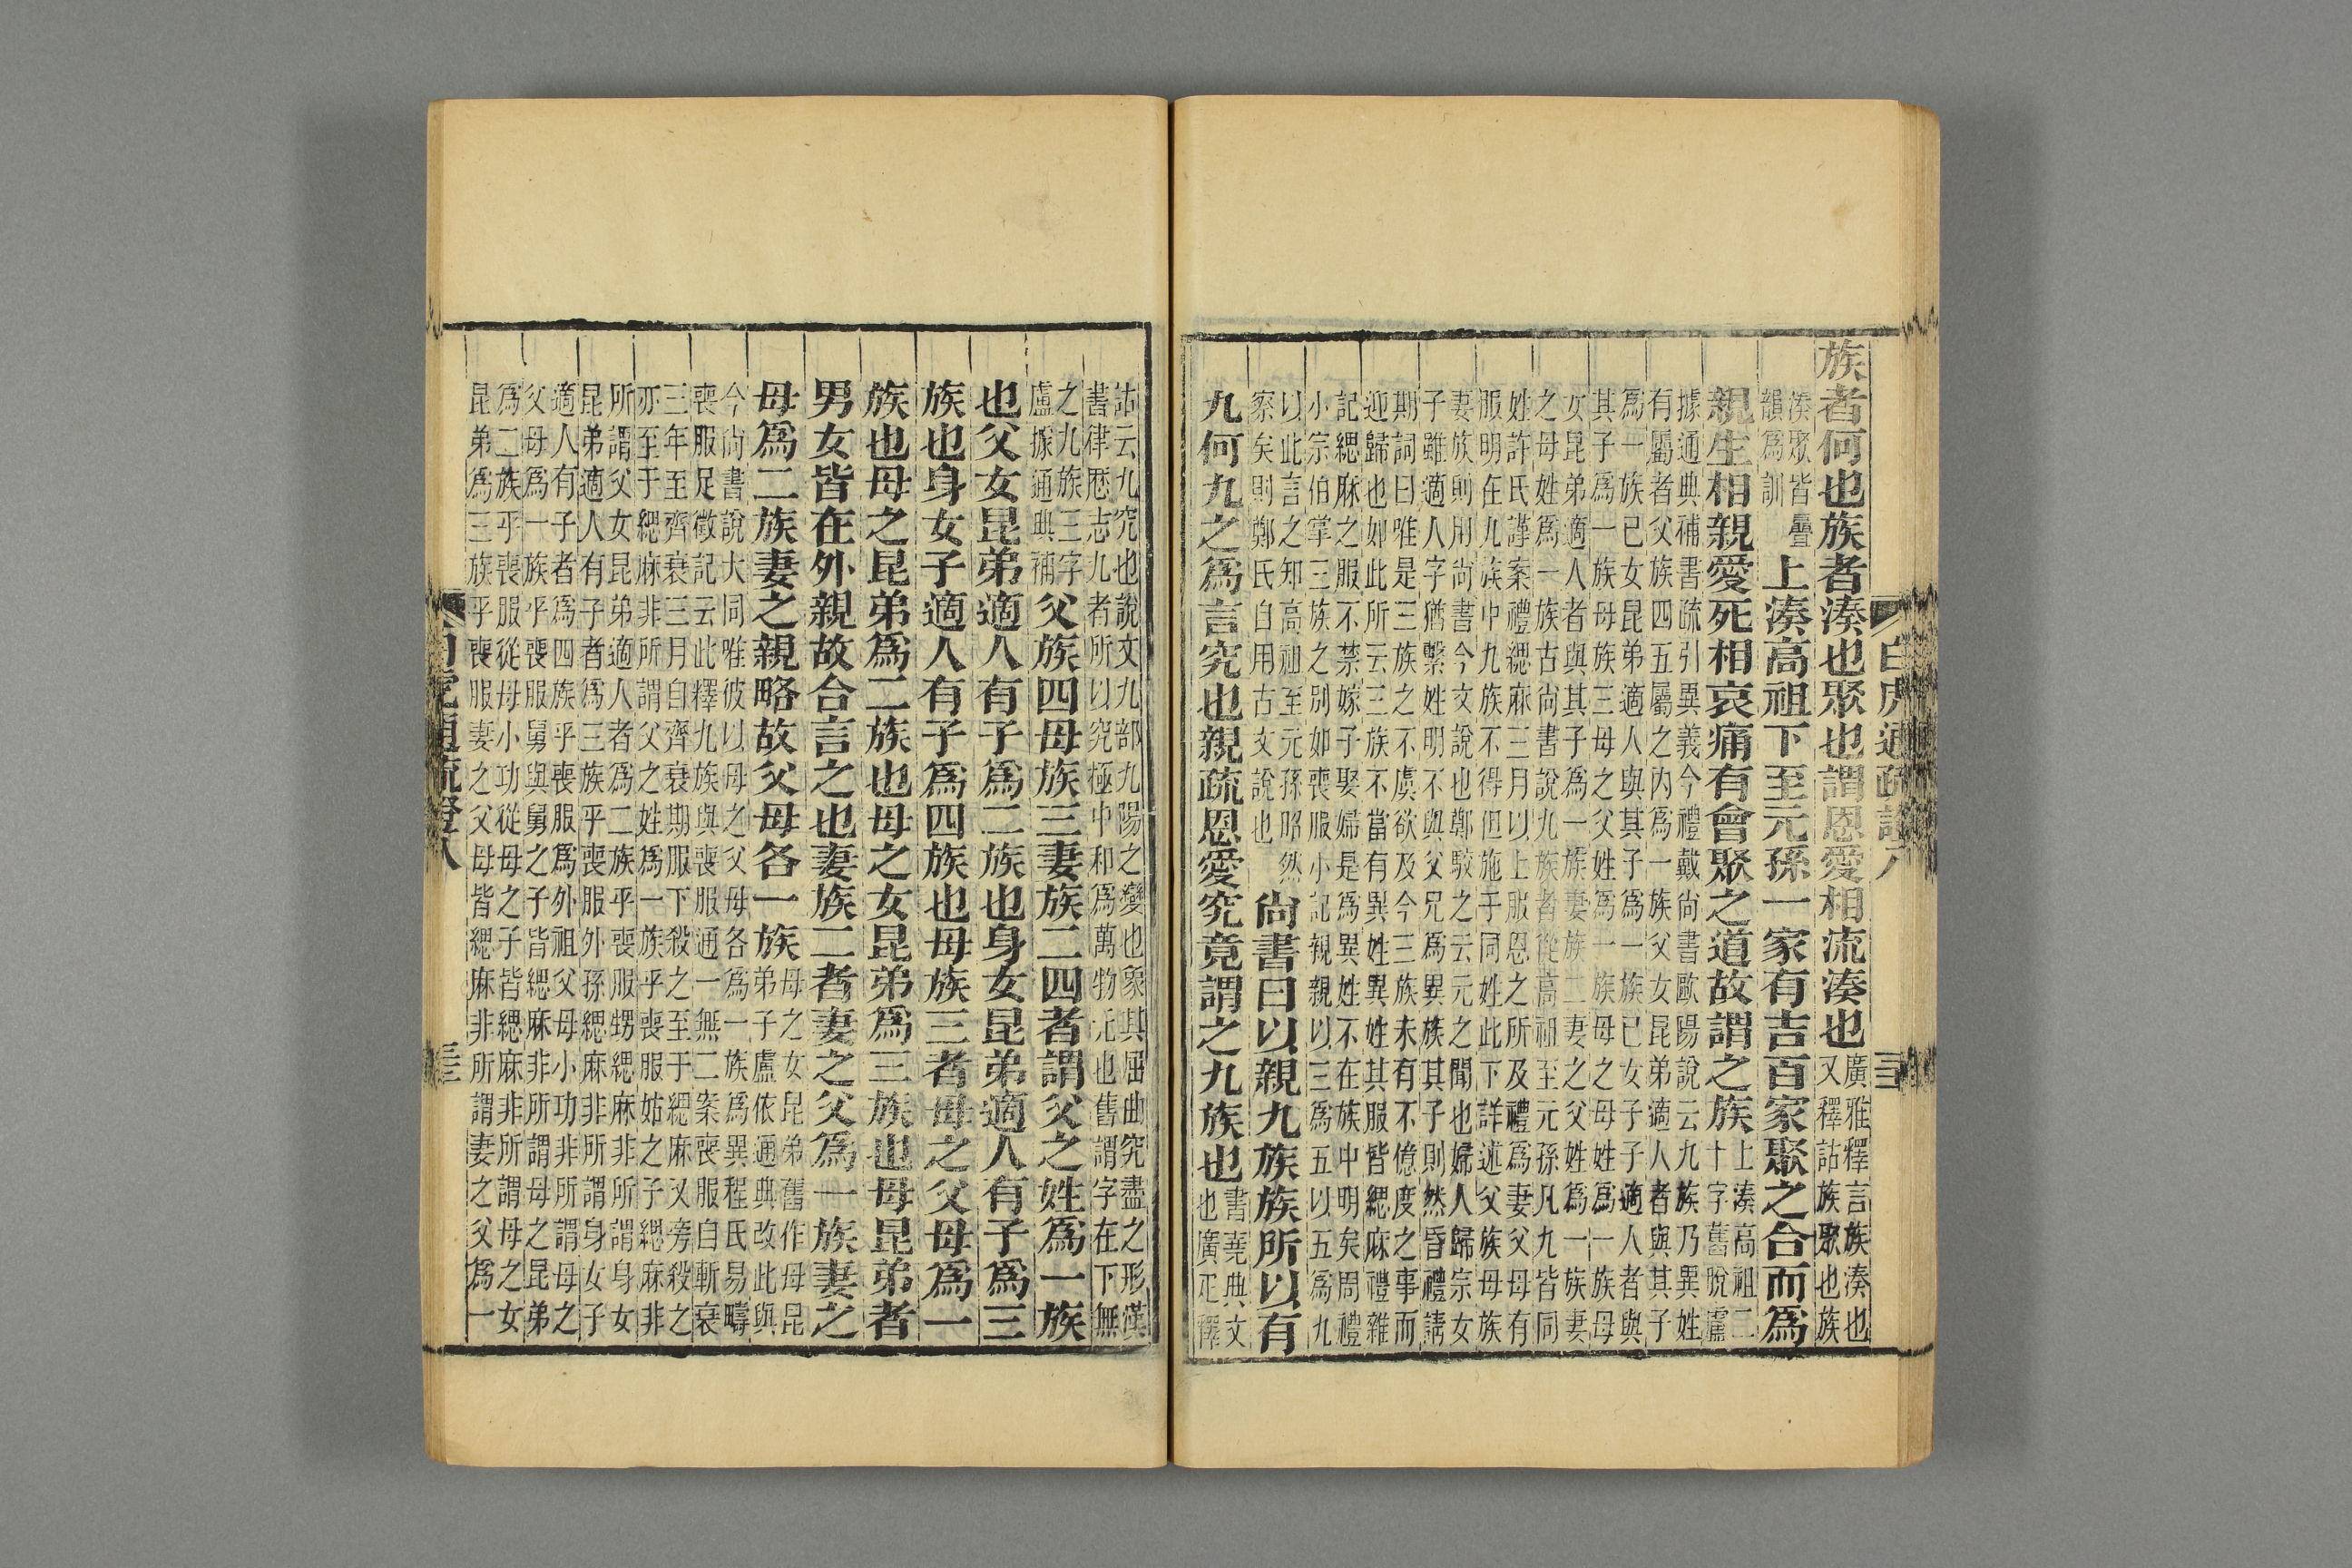 白虎通疏證八
族者何也族者湊也聚也謂恩愛相流湊也
廣雅釋言族湊也
又釋詁族聚也族
湊聚皆疊
韻爲訓
上湊高祖下至元孫一家有吉百家聚之合而爲
親生相親愛死相哀痛有會聚之道故謂之族
上湊高祖二
十字舊脫盧
據通典補書疏引異義今禮戴尚書歐陽說云九族乃異姓
有屬者父族四五屬之內爲一族父女昆弟適人者與其子
爲一族已女昆弟適人與其子爲一族已女子子適人者與
其子爲一族母族三母之父姓爲一族母之母姓爲一族母
女昆弟適人者與其子爲一族妻族二妻之父姓爲一族妻
之母姓爲一族古尚書說九族者從高祖至元孫凡九皆同
姓許氏謹案禮緦麻三月以上服恩之所及禮爲妻父母有
服明在九族中九族不得但施于同姓此下詳述父族母族
妻族則用尚書今文說也鄭駮之云元之聞也婦人歸宗女
子雖適人字猶繫姓明不與父兄爲異族其子則然昏禮請
期詞曰唯是三族之不虞欲及今三族未有不億度之事而
迎歸也如此所云三族不當有異姓異姓其服皆緦麻禮雜
記緦麻之服不禁嫁子娶婦是爲異姓不在族中明矣周禮
小宗伯掌三族之別如喪服小記親親以三爲五以五爲九
以此言之知高祖至元孫昭然
察矣則鄭氏自用古文說也
尚書曰以親九族族所以有
九何九之爲言究也親疏恩愛究竟謂之九族也
書堯典文
也廣疋釋
詁云九究也說文九部九陽之變也象其屈曲究盡之形漢
書律厯志九者所以究極中和爲萬物元也舊謂字在下無
之九族三字
盧據通典補
父族四母族三妻族二四者謂父之姓爲一族
也父女昆弟適人有子爲二族也身女昆弟適人有子爲三
族也身女子適人有子爲四族也母族三者母之父母爲一
族也母之昆弟爲二族也母之女昆弟爲三族也母昆弟者
男女皆在外親故合言之也妻族二者妻之父爲一族妻之
母爲二族妻之親略故父母各一族
母之女昆弟舊作母昆
弟子盧依通典改此與
今尚書說大同唯彼以母之父母各爲一族爲異程氏易疇
喪服足徵記云此釋九族與喪服通一無二案喪服自斬衰
三年至齊衰三月自齊衰期服下殺之至于緦麻又旁殺之
亦至于緦麻非所謂父之姓爲一族乎喪服姑之子緦麻非
所謂父女昆弟適人者爲二族乎喪服甥緦麻非所謂身女
昆弟適人有子者爲三族乎喪服外孫緦麻非所謂身女子
適人有子者爲四族乎喪服爲外祖父母小功非所謂母之
父母爲一族乎喪服舅與舅之子皆緦麻非所謂母之昆弟
爲二族乎喪服從母小功從母之子皆緦麻非所謂母之女
昆弟爲三族乎喪服妻之父母皆緦麻非所謂妻之父爲一
白虎通疏證八